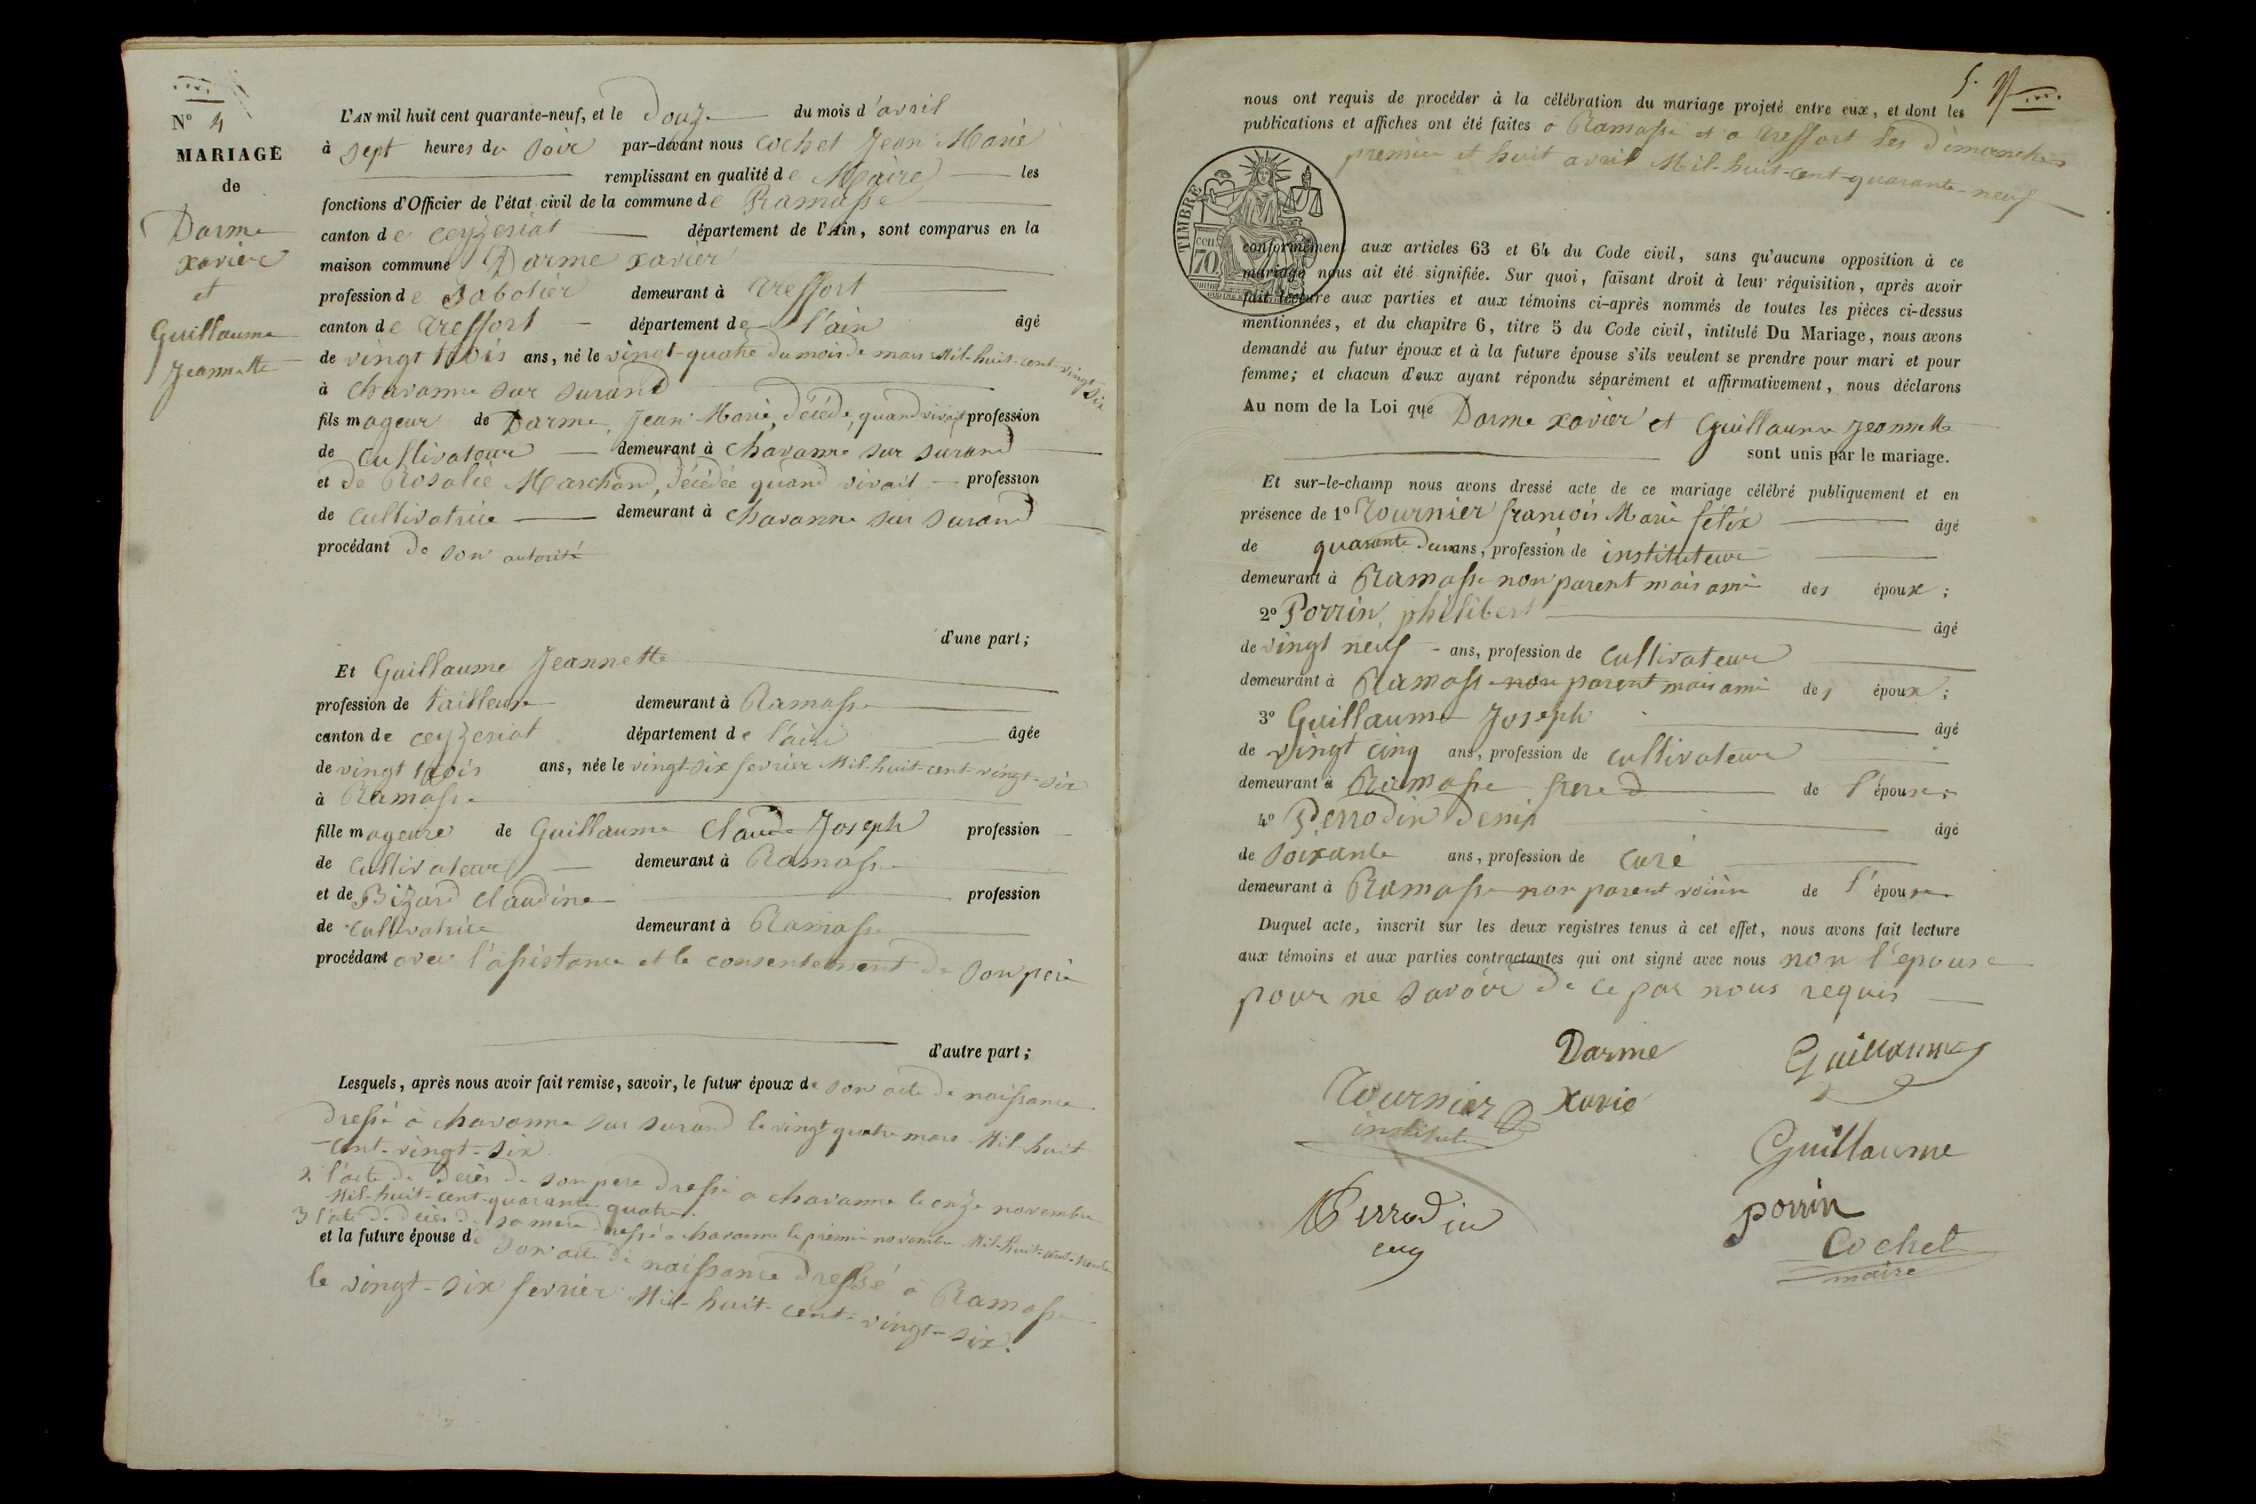 N° 4
MARIAGE
de
Darme
xavier
et
Guillaume
Jeannette
L'AN mil huit cent quarante-neuf, et le Douze du mois d'avril
à sept heures du soir par-devant nous Cochet Jean Marie
remplissant en qualité de Maire les
fonctions d'Officier de l'état civil de la commune de Ramasse
canton de ceyzeriat département de l'Ain, sont comparus en la
maison commune Darme xavier
profession de Sabotier demeurant à Treffort
canton de Treffort département de l'ain âgé
de vingt trois ans, né le vingt-quatre du mois de mars Mil-huit-cent-vingt six
à Chavanne sur surand
fils mageur de Darme, Jean Marie, décédé, quand vivait profession
de Cultivateur demeurant à Chavanne sur surand
et de Rosalie Marchand, décédée quand vivait profession
de cultivatrice demeurant à Chavanne sur surand
procédant de son autorité
d'une part;
Et Guillaume Jeannette
profession de tailleuse demeurant à Ramasse
canton de ceyzeriat département de l'ain âgée
de vingt trois ans, née le vingt-six fevrier Mil-huit-cent-vingt-six
à Ramasse
fille mageure de Guillaume Claude Joseph profession
de Cultivateur demeurant à Ramasse
et de Bizard claudine profession
de cultivatrice demeurant à Ramasse
procédant avec l'assistance et le consentement de son père
d'autre part;
Lesquels, après nous avoir fait remise, savoir, le futur époux de son acte de naissance
dressé à chavanne sur surand le vingt quatre mars Mil-huit
-cent-vingt-six
2 l'acte de décès de son pere dressé a chavanne le onze novembre
Mil-huit-cent-quarante quatre.
3 l'acte de décès de sa mere dressé a chavanne le premier novembre Mil-huit-cent-trente
et la future épouse de son acte de naissance dressé à Ramasse
le vingt-six fevrier Mil-huit-cent-vingt-six.
5.
nous ont requis de procéder à la célébration du mariage projeté entre eux, et dont les
publications et affiches ont été faites à Ramasse et a Treffort les dimanches
premier et huit avril Mil-huit-cent-quarante-neuf
TIMBRE
cen
70
conformément aux articles 63 et 64 du Code civil, sans qu'aucune opposition à ce
mariage nous ait été signifiée. Sur quoi, faisant droit à leur réquisition, après avoir
fait lecture aux parties et aux témoins ci-après nommés de toutes les pièces ci-dessus
mentionnées, et du chapitre 6, titre 5 du Code civil, intitulé Du Mariage, nous avons
demandé au futur époux et à la future épouse s'ils veulent se prendre pour mari et pour
femme; et chacun d'eux ayant répondu séparément et affirmativement, nous déclarons
Au nom de la Loi que Darme xavier et Guillaume Jeannette
sont unis par le mariage.
Et sur-le-champ nous avons dressé acte de ce mariage célébré publiquement et en
présence de 1° Tournier françois Marie félix âgé
de quarante deux ans, profession de instituteur
demeurant à Ramasse non parent mais ami des époux;
2° Porrin, philibert âgé
de vingt neuf ans, profession de cultivateur
demeurant à Ramasse non parent mais ami des époux;
3° Guillaume Joseph âgé
de vingt cinq ans, profession de cultivateur
demeurant à Ramasse frere de l'épouse;
4° Perrodin Denis âgé
de soixante ans, profession de curé
demeurant à Ramasse non parent voisin de l'épouse
Duquel acte, inscrit sur les deux registres tenus à cet effet, nous avons fait lecture
aux témoins et aux parties contractantes qui ont signé avec nous non l'epouse
pour ne savoir de ce par nous requis
Darme Guillaume
Tournier xavié
institut
Guillaume
Perrodin porrin
curé Cochet
maire